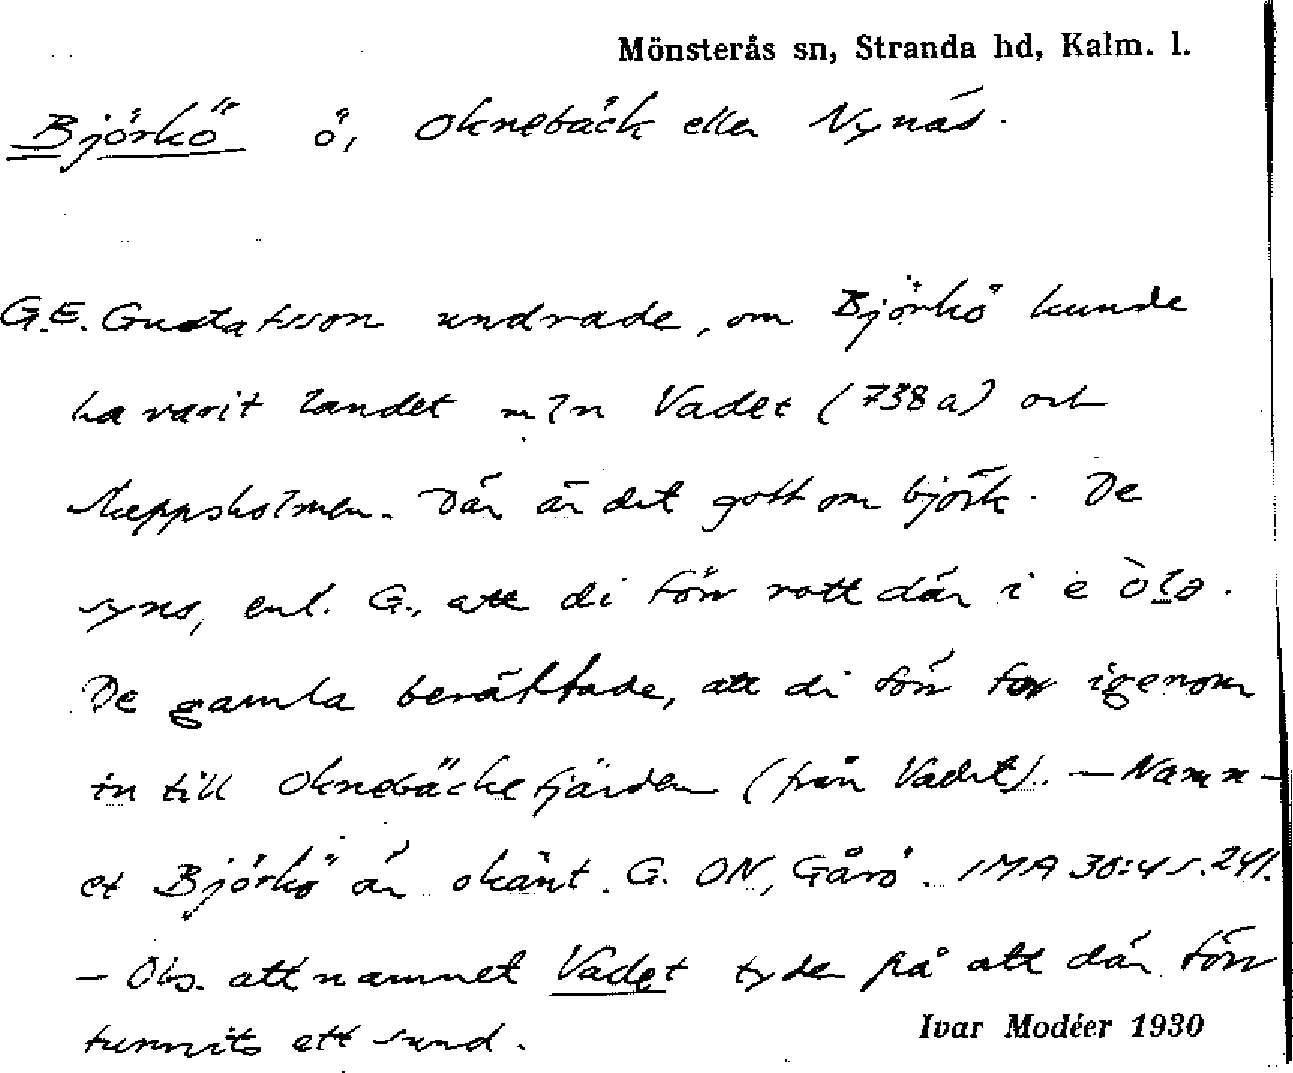 Mönsterås sn, Stranda hd, Kalm. l.
Björkö ö, Oknebäck eller Nynäs.
G.E. Gustafsson undrade, om Björkö kunde
ha varit landet mln Vadet (738a) och
Skeppsholmen. Där är det gott om björk. De
syns, enl. G., att di förr rott där i e
De gamla berättade, att di förr for igenom
in till Oknebäckefjärden (från Vadet). – Namn-
et Björkö är okänt. G. ON, Gårö. IMA 30:4 s. 241.
– Obs. att namnet Vadet tyder på att där förr
funnits ett sund.
Ivar Modéer 1930